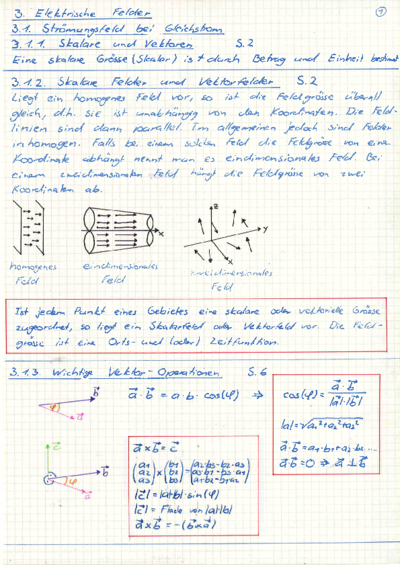 3. Elektrische Felder
1
3.1. Strömungsfeld bei Gleichstrom
3.1.1. Skalare und Vektoren S.2
Eine skalare Grösse (Skalar) ist durch Betrag und Einheit bestimmt
3.1.2. Skalare Felder und Vektorfelder S.2
Liegt ein homogenes Feld vor, so ist die Feldgrösse überall
gleich, d.h. sie ist unabhängig von den Koordinaten. Die Feld-
linien sind dann parallel. Im allgemeinen jedoch sind Felder
inhomogen. Falls bei einem solchen Feld die Feldgrösse von eine
Koordinate abhängt nennt man es eindimensionales Feld. Bei
einem zweidimensionalen Feld hängt die Feldgrösse von zwei
Koordinaten ab.
z
x
y
x
homogenes Feld
eindimensionales Feld
zweidimensionales Feld
Ist jedem Punkt eines Gebietes eine skalare oder vektorielle Grösse
zugeordnet, so liegt ein Skalarfeld oder Vektorfeld vor. Die Feld-
grösse ist eine Orts- und (oder) Zeitfunktion.
3.1.3 Wichtige Vektor-Operationen S.6
b⃗
φ
a⃗
a⃗ · b⃗ = a · b · cos(φ) ⇒
cos(φ) = a⃗ · b⃗ / |a⃗|·|b⃗|
|a| = √a₁²+a₂²+a₃²
a⃗ · b⃗ = a₁·b₁+a₂·b₂ ....
a⃗ · b⃗ = 0 ⇒ a⃗ ⊥ b⃗
c⃗
b⃗
φ
a⃗
a⃗ × b⃗ = c⃗
(a1) (b1) (a2·b3-b2·a3)
(a2) × (b2) = (a3·b1-b3·a1)
(a3) (b3) (a1·b2-b1·a2)
|c⃗| = |a|·|b|·sin(φ)
|c⃗| = Fläche von |a|·|b|
a⃗ × b⃗ = -(b⃗ × a⃗)